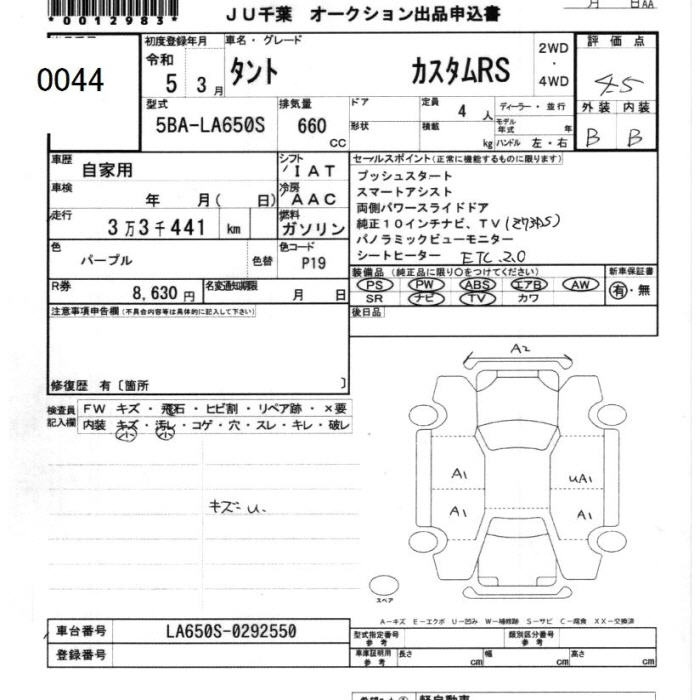 *0012983*
JU千葉 オークション出品申込書
月 日AA
0044
初度登録年月
令和
5 3月
車名・グレード
タント カスタムRS
2WD
・
4WD
評価点
4.5
外装 内装
B B
型式
5BA-LA650S
排気量
660
CC
ドア
形状
定員
4 人
積載
kg
ディーラー・並行
モデル年式 年
ハンドル 左・右
車歴
自家用
シフト
IAT
車検
年 月( 日)
冷房
AAC
走行
3万3千441 km
燃料
ガソリン
色
パープル
色替
色コード
P19
R券
8,630円
名変通知期限
月 日
セールスポイント(正常に機能するものに限ります)
プッシュスタート
スマートアシスト
両側パワースライドドア
純正10インチナビ、TV
パノラミックビューモニター
シートヒーター ETC 2.0
装備品 (純正品に限り○をつけてください)
新車保証書
PS PW ABS エアB AW
SR ナビ TV カワ
有・無
後日品
注意事項申告欄(不具合内容等は具体的に記入して下さい)
修復歴 有〔箇所 〕
検査員
記入欄
FW キズ・飛石・ヒビ割・リペア跡・×要
内装 キズ・汚レ・コゲ・穴・スレ・キレ・破レ
小 小
キズ=U.
A2
A1 UA1
A1 A1
スペア
A-キズ E-エクボ U-凹み W-補修跡 S-サビ C-腐食 XX-交換済
車台番号
LA650S-0292550
登録番号
型式指定番号
参考
類別区分番号
参考
車庫証明用
参考
長さ cm
幅 cm
高さ cm
軽自動車